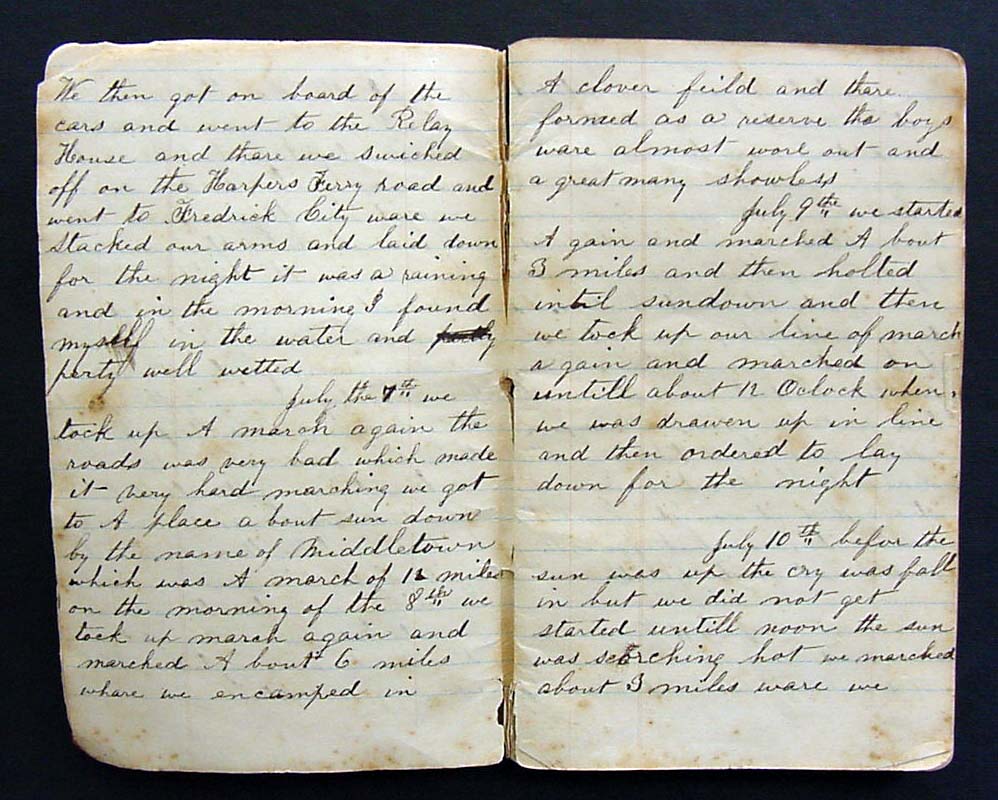 We then got on board of the
cars and went to the Relay
House and thare we swiched
off on the Harpers Ferry road and
went to Fredrick City ware we
stacked our arms and laid down
for the night it was a raining
and in the morning I found
myself in the water and
perty well wetted
July the 7th we
tock up A march again the
roads was very bad which made
it very hard marching we got
to A place a bout sun down
by the name of Middletown
which was A march of 12 miles
on the morning of the 8th we
tock up march again and
marched A bout 6 miles
whare we encamped in
A clover feild and thare
formed as a reserve tha boys
ware almost wore out and
a great many showless
July 9the we started
A gain and marched A bout
3 miles and then holted
intil sundown and then
we tock up our line of march
a gain and marched on
untill about 12 Oclock when
we was drawen up in line
and then ordered to lay
down for the night
July 10th befor the
sun was up the cry was fall
in but we did not get
started untill noon the sun
was scorching hot we marched
about 3 miles ware we